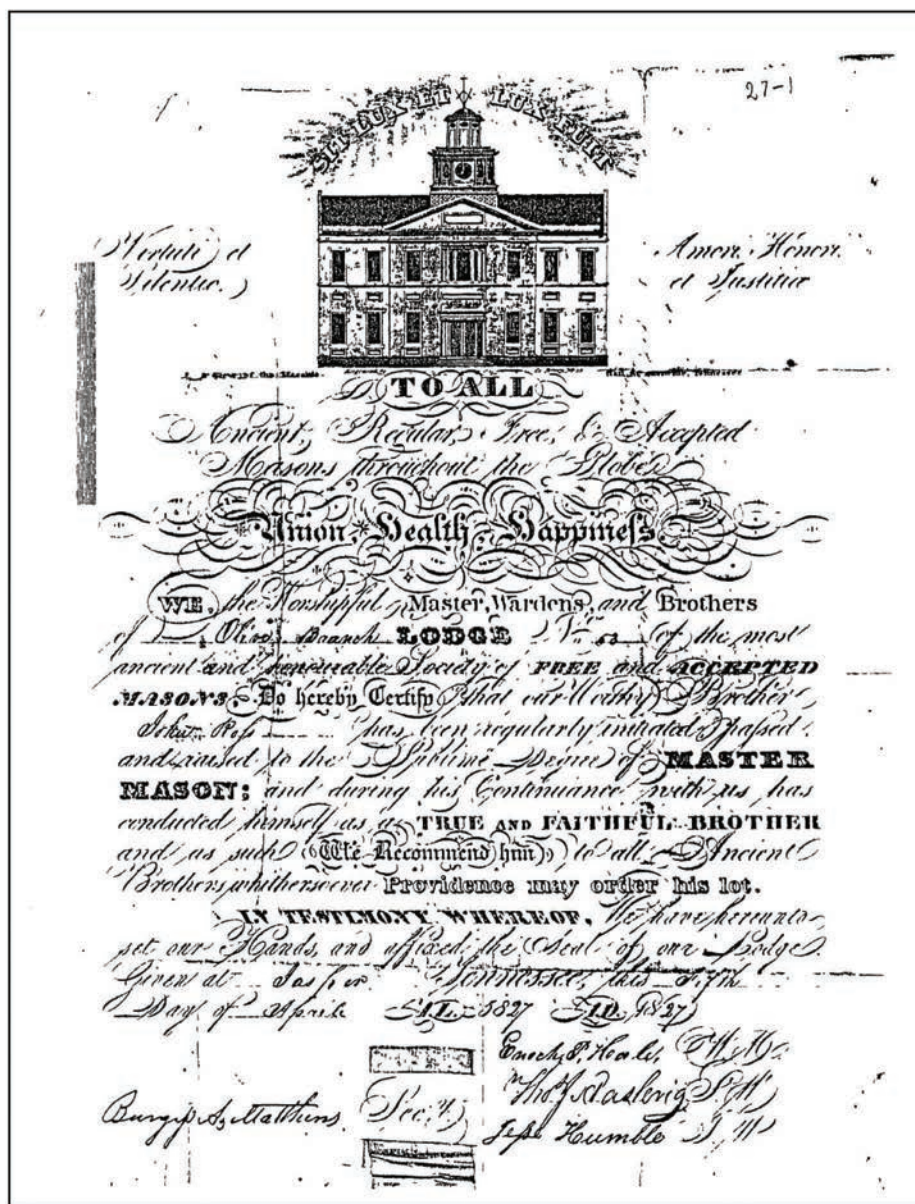 27-1
SIT LUX ET LUX FUIT
Virtute et
Silentio.
Amori Honori
et Justitiæ
TO ALL
Ancient, Regular, Free, & Accepted
Masons throughout the Globe
Union, Health, Happineſs.
WE, the Worshipful Master, Wardens, and Brothers
of Olive Branch LODGE No 53 of the most
ancient and honourable Society of FREE and ACCEPTED
MASONS; Do hereby Certify that our Worthy Brother
John Roſs has been regularly initiated paſsed
and raised to the Sublime Degree of MASTER
MASON; and during his Continuance with us has
conducted himself as a TRUE AND FAITHFUL BROTHER
and as such (We Recommend him) to all Ancient
Brothers whithersoever Providence may order his lot.
IN TESTIMONY WHEREOF, We have hereunto
set our Hands, and affixed the Seal of our Lodge
Given at Jasper Tennessee, this
Day of April A.L. 5827 A.D. 1827
Enoch P. W.M.
S.W
Burgeſs Matthews Sec.y
Jeſse Humble J W